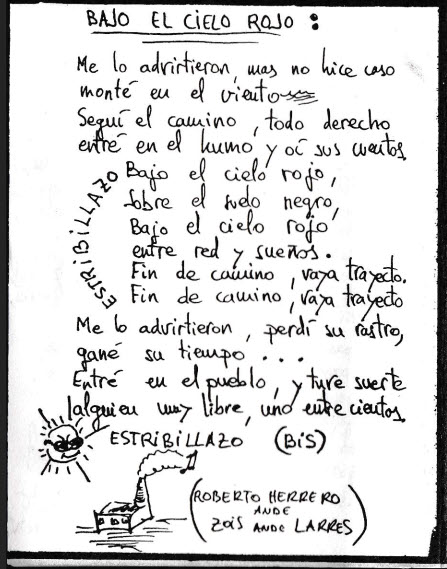 BAJO EL CIELO ROJO :
Me lo advirtieron, mas no hice caso
monté en el viento
Seguí el camino, todo derecho
entré en el humo y oí sus cuentos
ESTRIBILLAZO
Bajo el cielo rojo,
Sobre el suelo negro,
Bajo el cielo rojo
entre red y sueños.
Fin de camino, vaya trayecto.
Fin de camino, vaya trayecto
Me lo advirtieron, perdí su rastro,
gané su tiempo ...
Entré en el pueblo, y tuve suerte
alguien muy libre, uno entre cientos
ESTRIBILLAZO (BIS)
(ROBERTO HERRERO
ANDE
ZOIS ANDE LARRES)